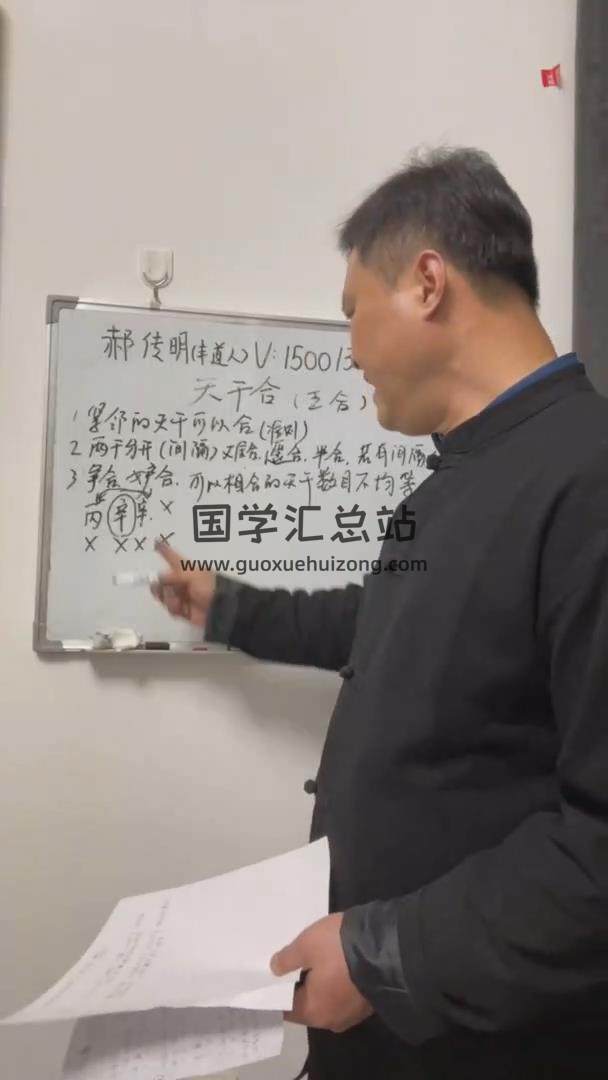 郝传明(丰道人)V:150013
天干合(五合)
1 紧邻的天干可以合(准则)
2 两干分开(间隔)又居合,遥合.半合,若有间隔
3 争合 妒合.可以相合的天干数目不均等
丙 辛 辛 X
X X X X
国学汇总站
www.guoxuehuizong.com